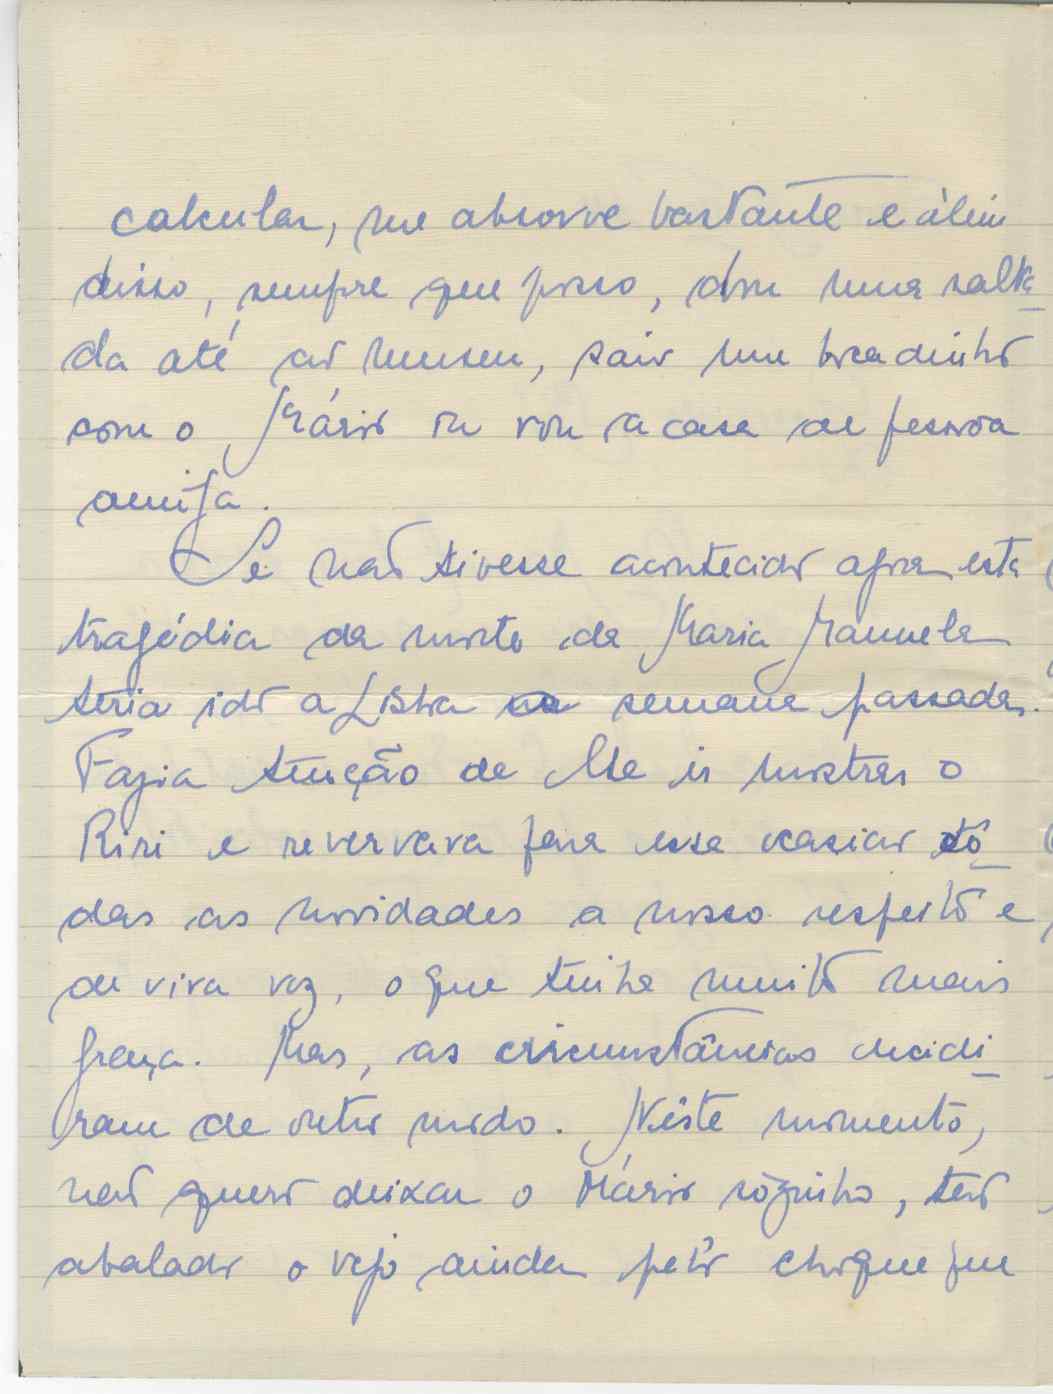 calcular, me absorve bastante e àlém
disso, sempre que posso, dou uma salta
da até ao Museu, saio um bocadinho
com o Mário ou vou a casa de pessoa
amiga.
Se não tivesse acontecido agora esta
tragédia da morte da Maria Manuela
teria ido a Lisboa na semana passada.
Fazia tenção de lhe ir mostrar o
Riri e reservava para essa ocasião tô
das as novidades a nosso respeito e
de viva voz, o que tinha muito mais
graça. Mas, as circunstâncias decidi
ram de outro modo. Nêste momento,
não quero deixar o Mário sòzinho, tão
abalado o vejo ainda pelo choque que